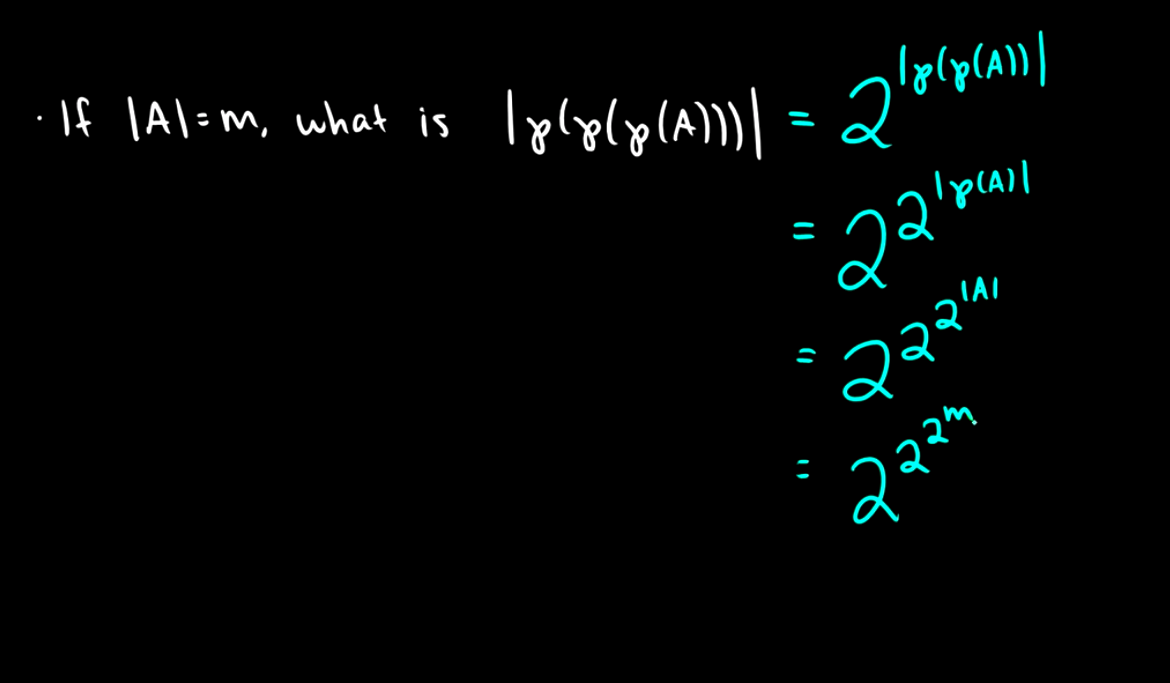 · If |A|=m, what is |℘(℘(℘(A)))| = 2^{|℘(℘(A))|}
= 2^{2^{|℘(A)|}}
= 2^{2^{2^{|A|}}}
= 2^{2^{2^{m}}}